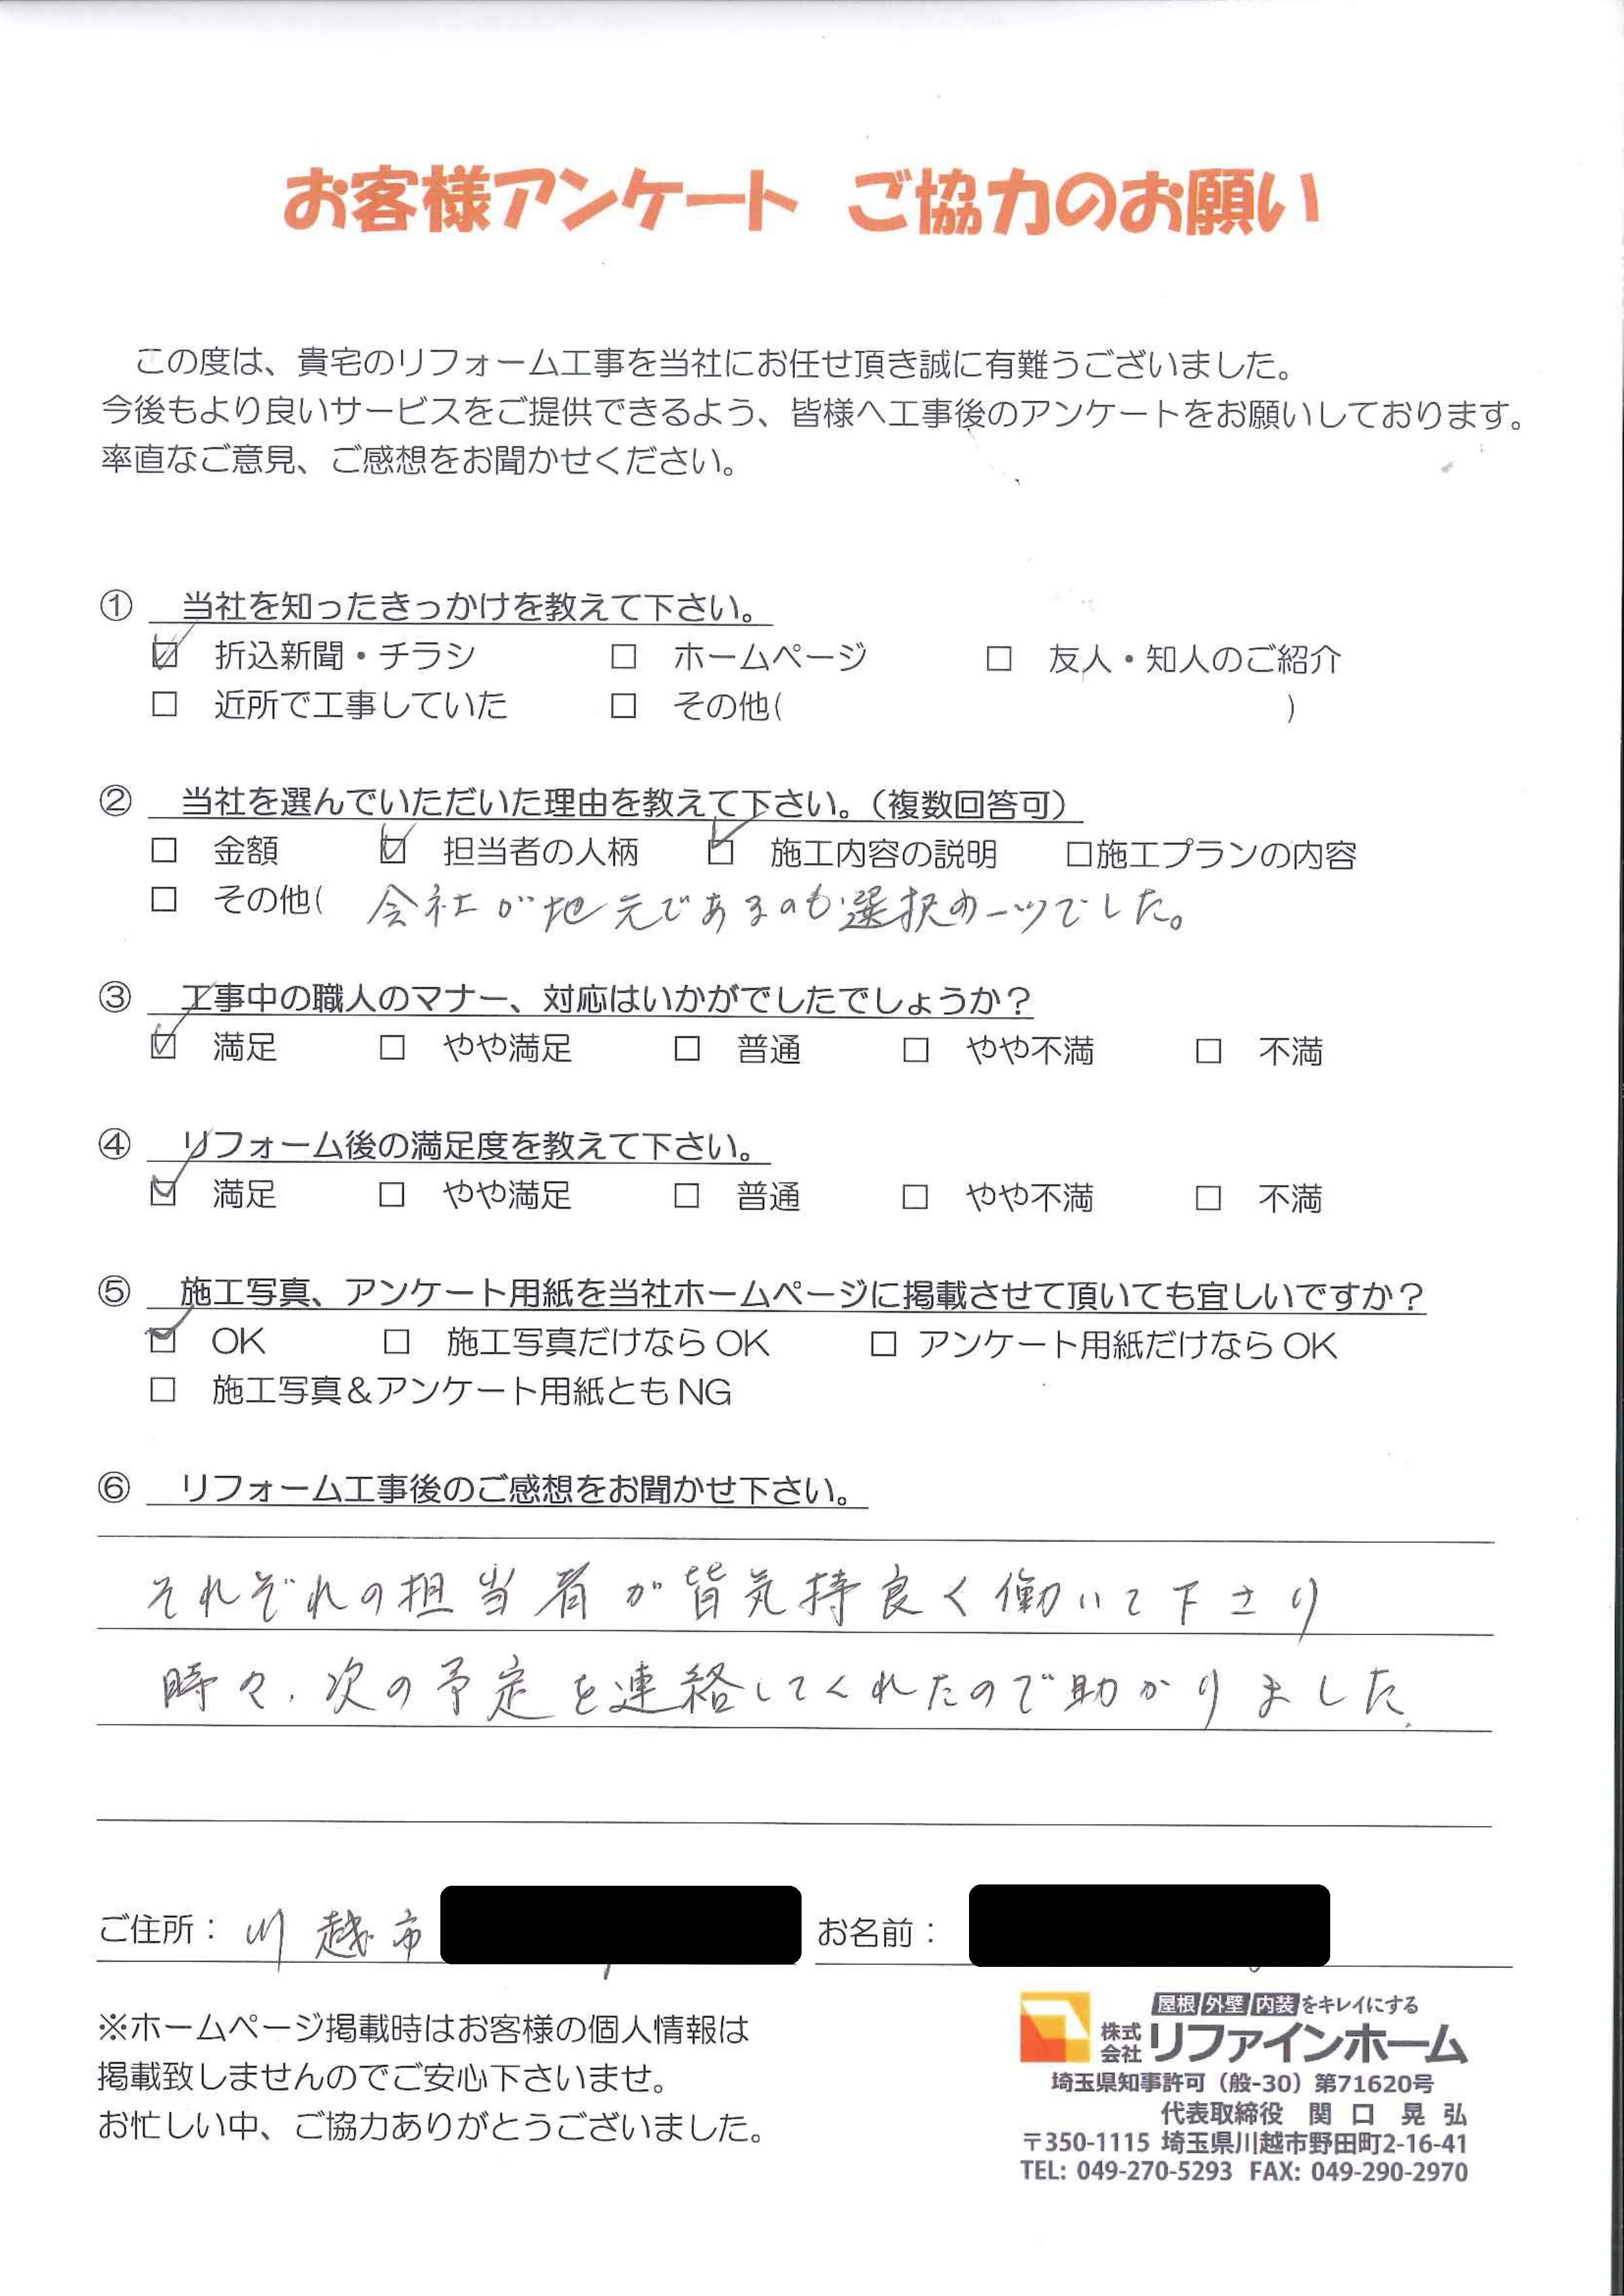 お客様アンケート ご協力のお願い
この度は、貴宅のリフォーム工事を当社にお任せ頂き誠に有難うございました。
今後もより良いサービスをご提供できるよう、皆様へ工事後のアンケートをお願いしております。
率直なご意見、ご感想をお聞かせください。
① 当社を知ったきっかけを教えて下さい。
☑ 折込新聞・チラシ □ ホームページ □ 友人・知人のご紹介
□ 近所で工事していた □ その他( )
② 当社を選んでいただいた理由を教えて下さい。（複数回答可）
□ 金額 ☑ 担当者の人柄 ☑ 施工内容の説明 □施工プランの内容
□ その他( 会社が地元であるのも選択の一ツでした。
③ 工事中の職人のマナー、対応はいかがでしたでしょうか？
☑ 満足 □ やや満足 □ 普通 □ やや不満 □ 不満
④ リフォーム後の満足度を教えて下さい。
☑ 満足 □ やや満足 □ 普通 □ やや不満 □ 不満
⑤ 施工写真、アンケート用紙を当社ホームページに掲載させて頂いても宜しいですか？
☑ OK □ 施工写真だけなら OK □ アンケート用紙だけなら OK
□ 施工写真＆アンケート用紙とも NG
⑥ リフォーム工事後のご感想をお聞かせ下さい。
それぞれの担当者が皆気持良く働いて下さり
時々、次の予定を連絡してくれたので助かりました.
ご住所： 川越市 お名前：
※ホームページ掲載時はお客様の個人情報は
掲載致しませんのでご安心下さいませ。
お忙しい中、ご協力ありがとうございました。
屋根 外壁 内装 をキレイにする
株式会社 リファインホーム
埼玉県知事許可（般-30）第71620号
代表取締役 関口 晃弘
〒350-1115 埼玉県川越市野田町2-16-41
TEL: 049-270-5293 FAX: 049-290-2970